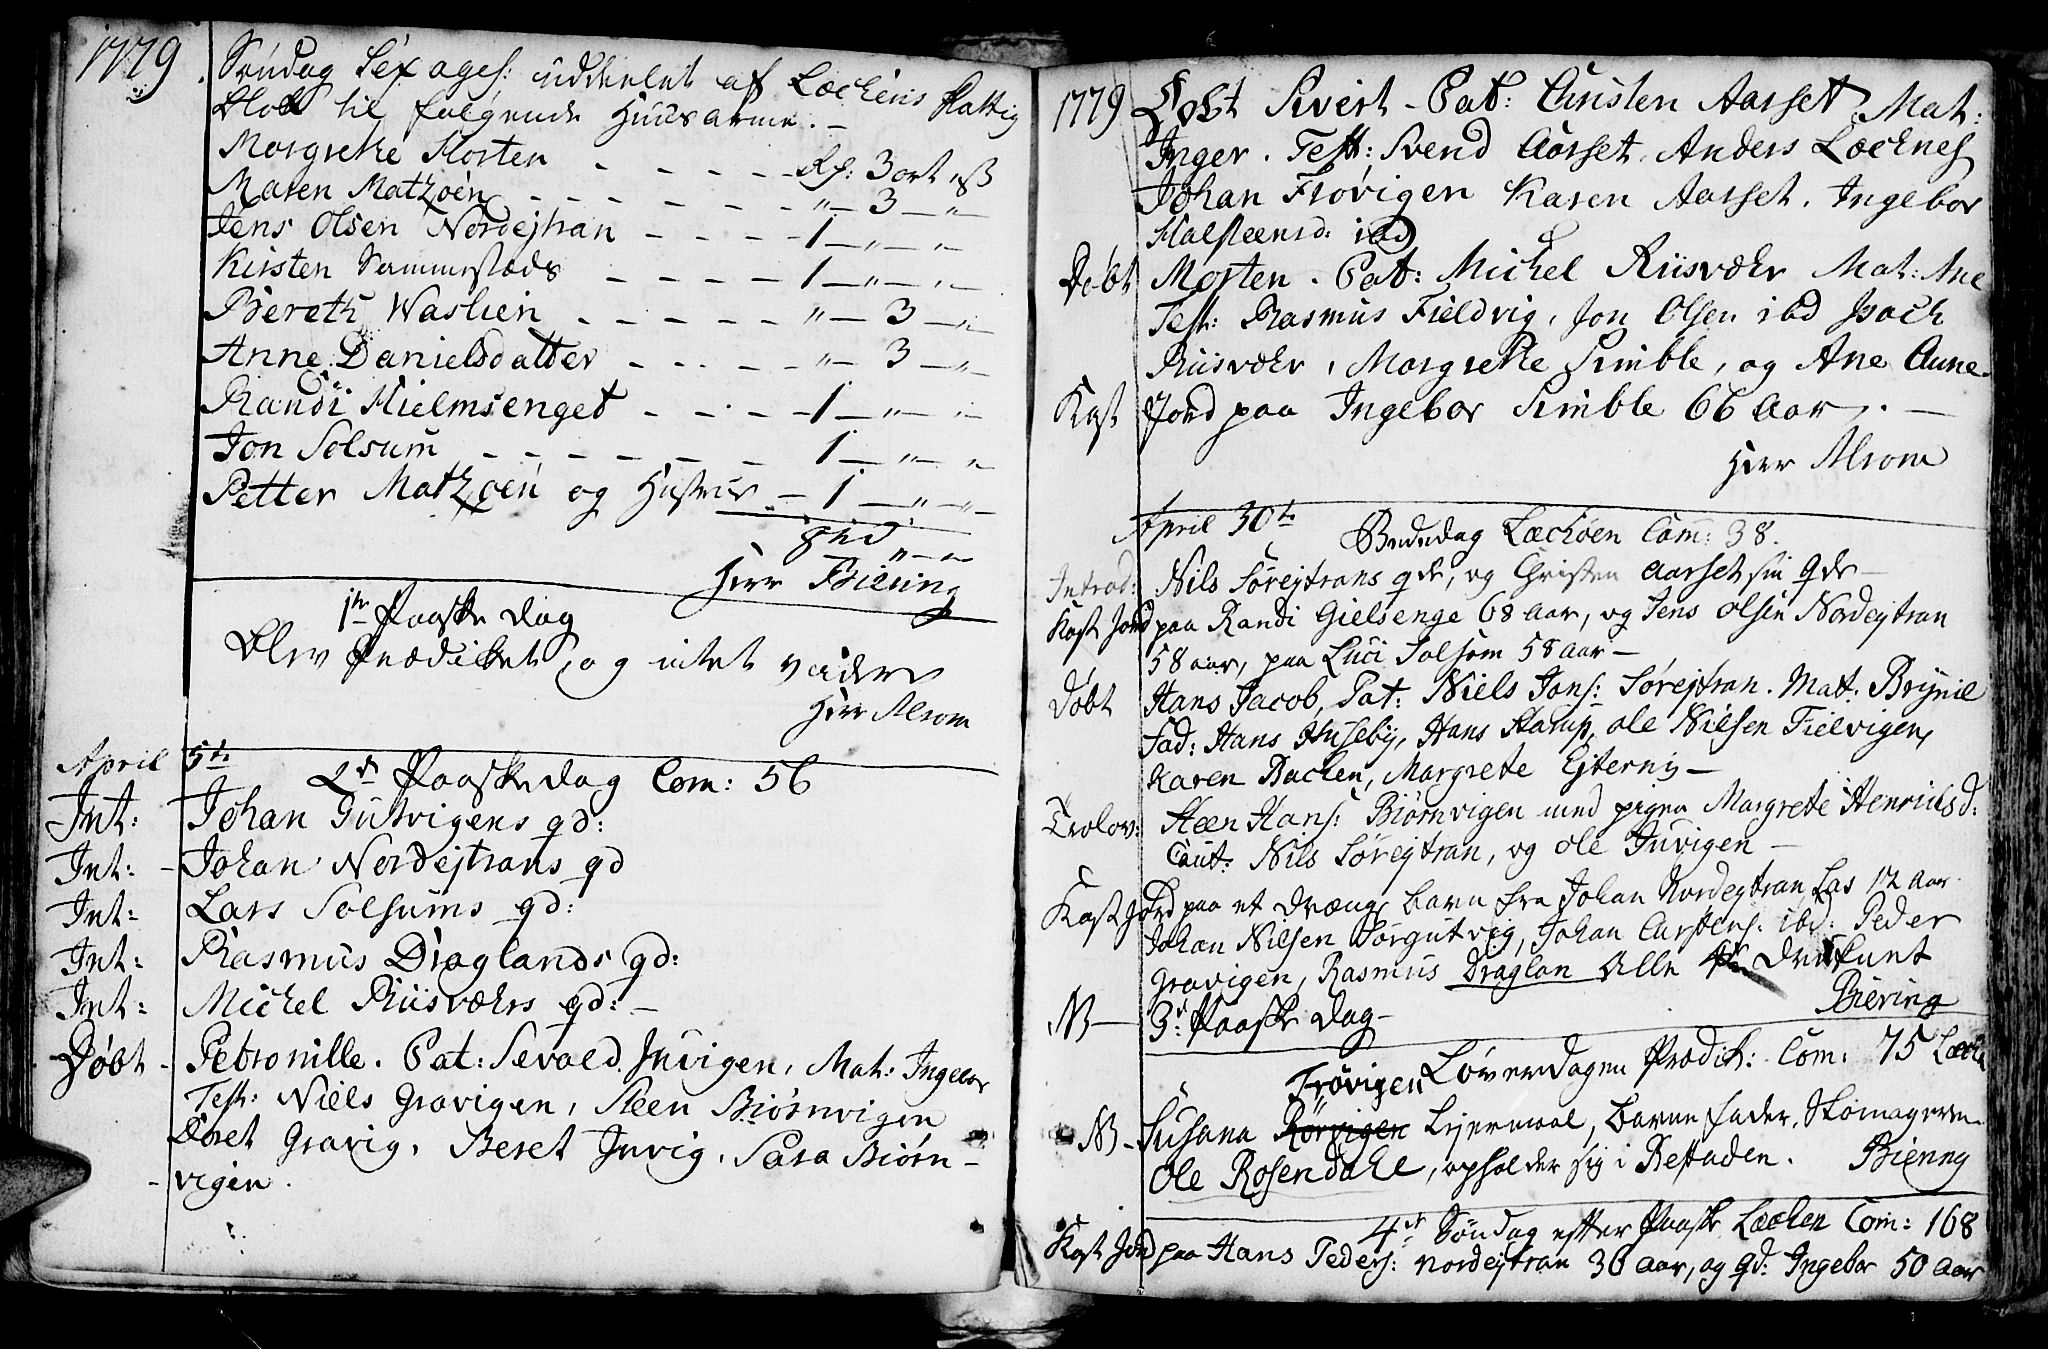 1779. Søndag Sexages: uddeelet af Lechens Fattig
Blok til følgende Huusarme. –
Margrethe Morten – – – – Rd: 3 ort ß
Maren Matzøen – – – – – – " – 3 – "
Jens Olsen Nordejtran – – – – 1 – " – "
Kirsten – – – – 1 – " – "
Bereth Waslien – – – – – " – 3 – "
Anne Danielsdatter – – – – " – 3 – "
Randi Hielmsenget – – – – 1 – " – "
Jon Solsum – – – – – – 1 – " – "
Petter Matzøen og Hustrue – 1 – " – "
Herr Biering
1te Paaske Dag
Blev Prædicket, og intet videre
Herr Alrom
April 5te
2den Paaske dag Com: 56
Int: Johan Gutvigens qd:
Int: – Johan Nordejtrans qd
Int: Lars Solsums qd:
Int: Rasmus Draglands qd:
Int: Michel Riisværs qd: –
Døbt – Petronille. Pat: Sevald Juvigen, Mat: Ingebor
Test: Niels Gravigen, Steen Biørnvigen
Beret Juvig, Sara Biørn–
vigen.
1779 Døbt Sivert – Pat: Christen Aarset, Mat:
Inger. Test: Svend Aarset, Anders Lechnes
Johan Frøvigen Karen Aarset, Ingebor
ibd
Døbt Morten. Pat: Michel Riisvær Mat: Ane
Test: Rasmus Fieldvig, Jon Olsen ibd Isach
Riisvær, Margrethe Simble, og Ane Aune
Kast Jord paa Ingebor Simble 66 Aar. –
Herr Alrom
April 30te
Bededag Lechøen Com: 38.
Introd: Nils Sørejtrans qde, og Christen Aarset sin qde –
Kast Jord paa Randi Gielsenge 68 Aar, og Jens Olsen Nordejtran
58 aar, paa Luci Solsem 58 Aar –
Døbt Hans Jacob, Pat: Niels Jons: Sørejtran. Mat: Brynil
Fad: Hans Huseby, Hans Stamp, Ole Nilsen Fielvigen,
Karen Bachen, Margrete Ejternis –
Trolov: Steen Hans: Biørnvigen med pigen Margrete Henriksd:
Caut: Nils Sørejtran, og Ole Juvigen –
Kast Jord paa et Dreng barn fra Johan Nordejtran, Las 12 Aar
Johan Nilsen Sørgutvig, Johan Carstens: ibd: Peder
Gravigen, Rasmus Draglan Alle Drukunt
Biering
NB – 3de Paaske Dag –
Løverdagen Prædik: Com: 75
Frøvigen
NB – Susana Rørvigen Lejermaal, barne fader, Skomageren
Ole Rosendahl, opholder sig i Bestaden. Biering
4de Søndag efter Paaske Lechen Com: 168
Kast Jord paa Hans Peders: Nordejtran 36 Aar, og qd: Ingebor 50 Aar